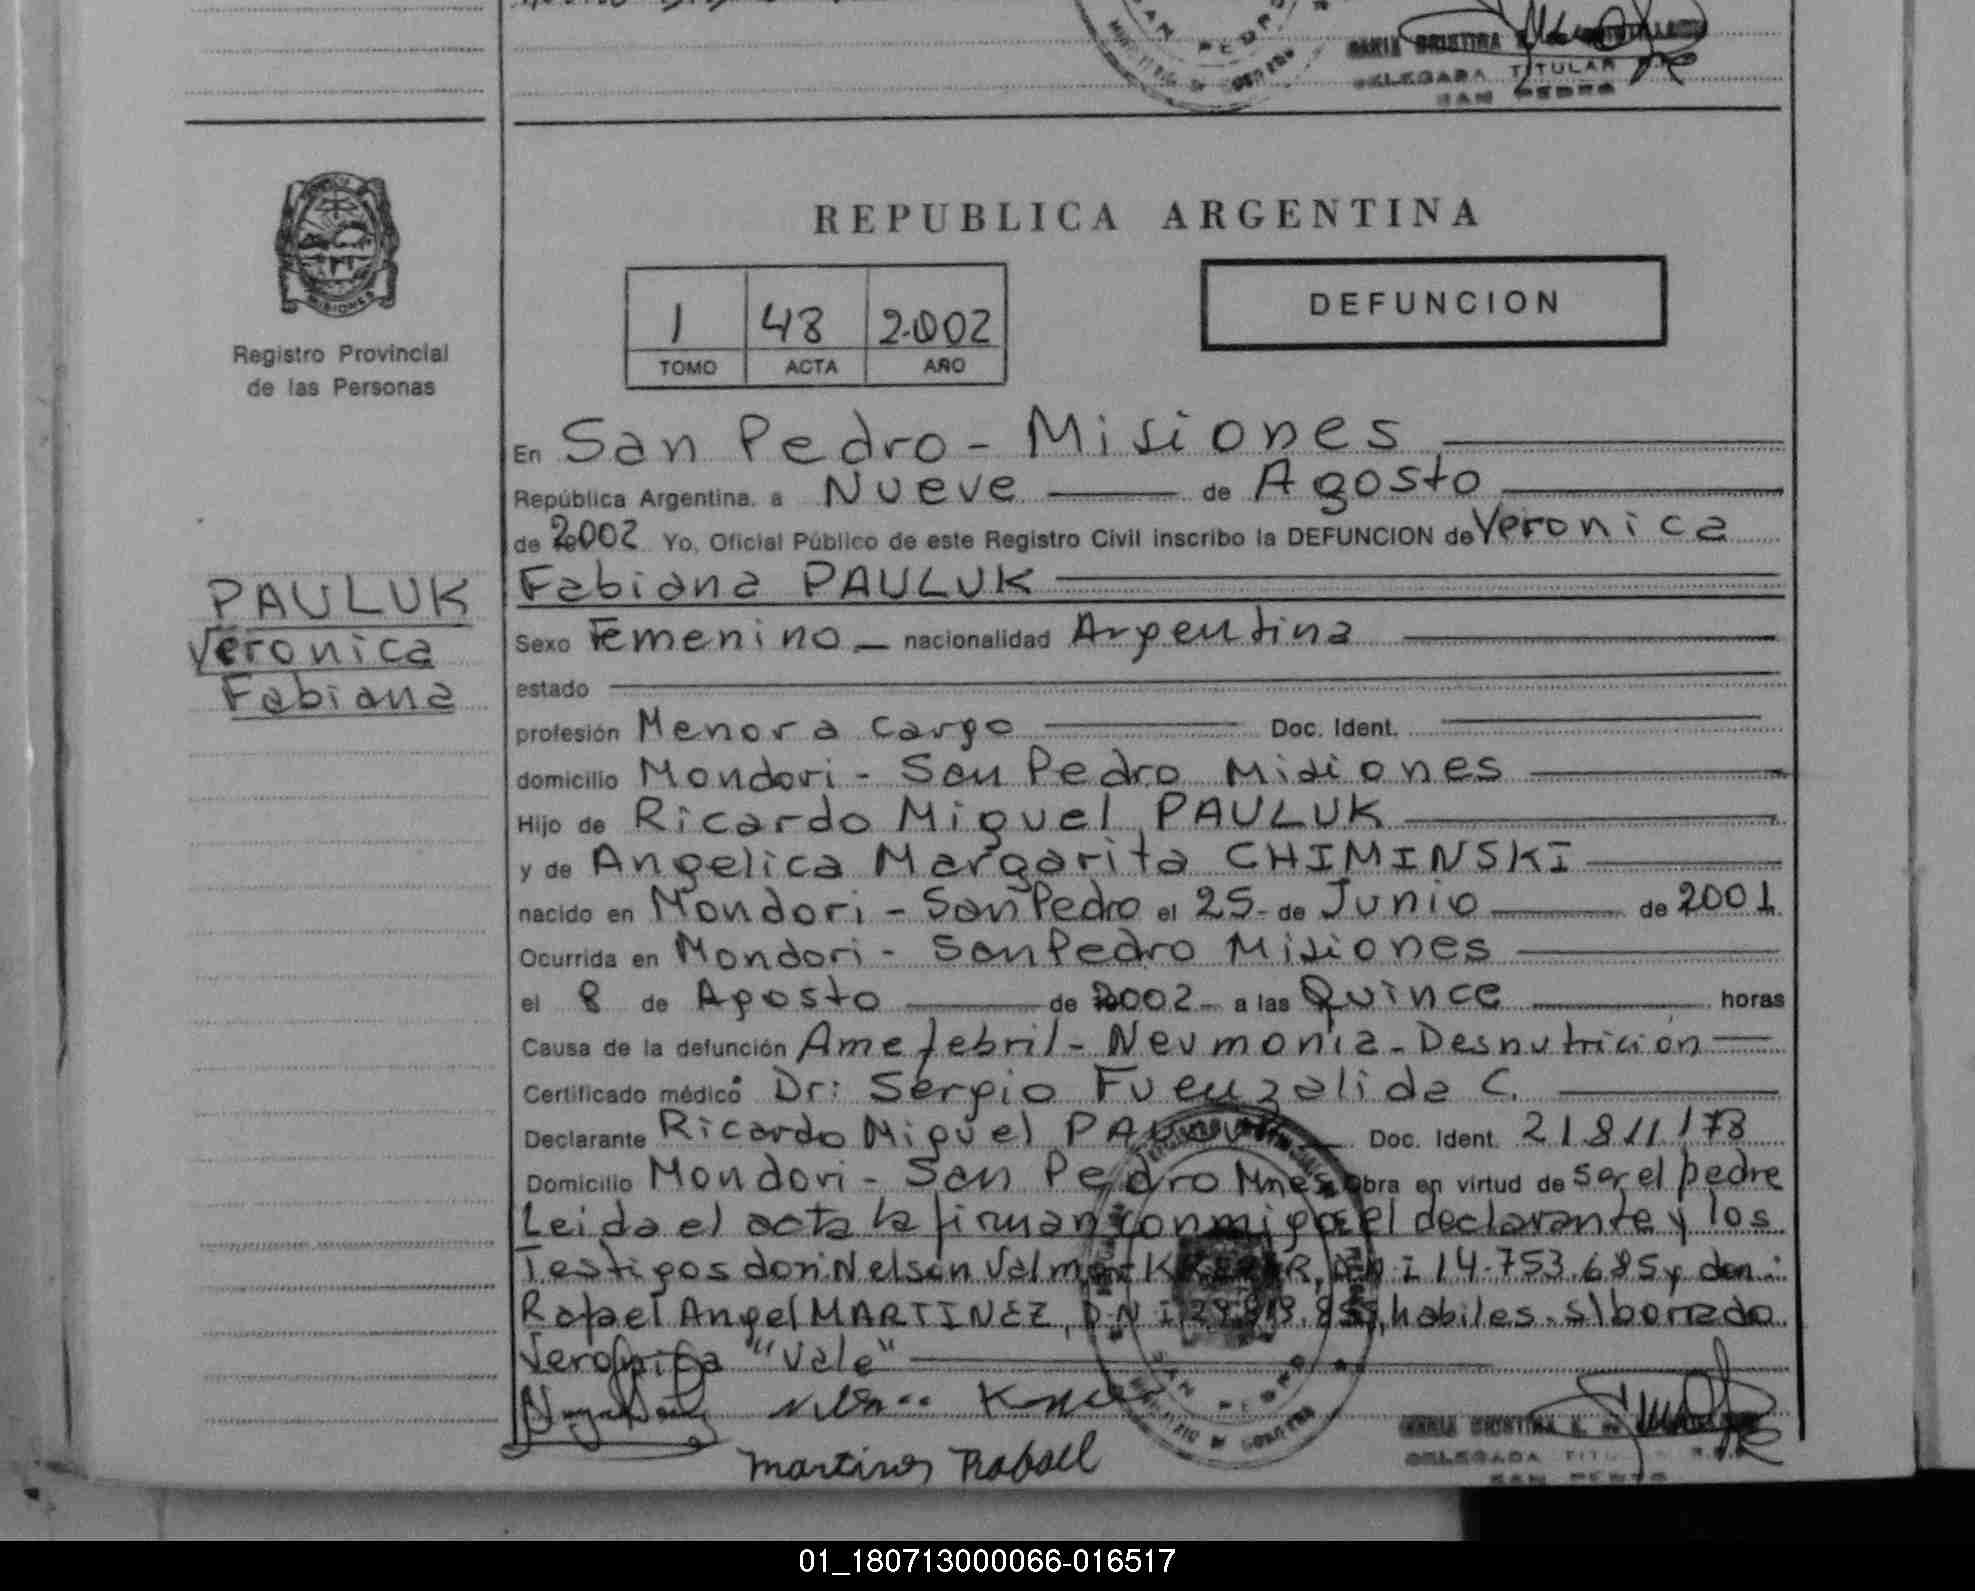 SAN PEDRO
MARIA CRISTINA
DELEGADA TITULAR
SAN PEDRO
MISIONES
Registro Provincial
de las Personas
REPUBLICA ARGENTINA
1 48 2.002
TOMO ACTA AÑO
DEFUNCION
En San Pedro - Misiones
República Argentina, a Nueve de Agosto
de 2002 Yo, Oficial Público de este Registro Civil inscribo la DEFUNCION de Veronica
Fabiana PAULUK
PAULUK
Veronica
Fabiana
Sexo Femenino - nacionalidad Argentina
estado
profesión Menor a cargo Doc. Ident.
domicilio Mondori - San Pedro Misiones
Hijo de Ricardo Miguel PAULUK
y de Angelica Margarita CHIMINSKI
nacido en Mondori - San Pedro el 25 - de Junio de 2001
Ocurrida en Mondori - San Pedro Misiones
el 8 de Agosto de 2002 - a las Quince horas
Causa de la defunción Ame febril - Neumonia - Desnutrición
Certificado médico Dr: Sergio Fuenzalida C.
Declarante Ricardo Miguel PAULUK Doc. Ident. 21811178
Domicilio Mondori - San Pedro Mnes obra en virtud de ser el padre
Leida el acta la firman conmigo el declarante y los
Testigos don: Nelson Valmor D.N.I 14.753.685 y don:
Rafael Angel MARTINEZ, D.N.I habiles. s/borrado
Veronica "Vale"
Martines Rafael
SAN PEDRO
MARIA CRISTINA
DELEGADA TITULAR
SAN PEDRO
01_180713000066-016517